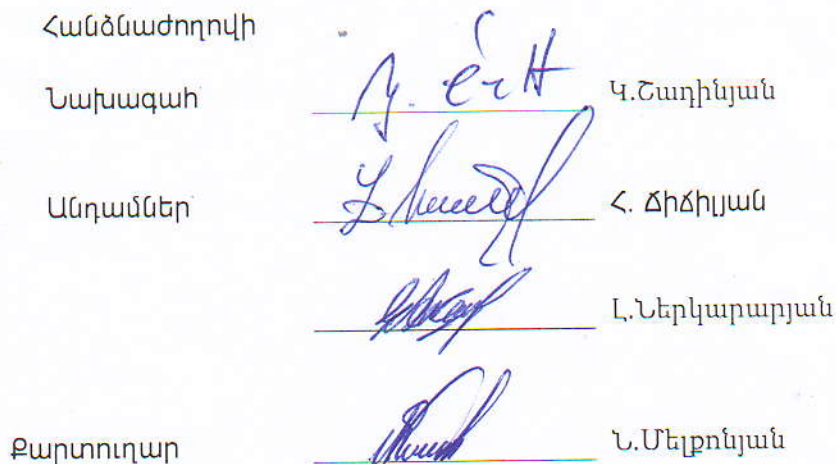 Հանձնաժողովի
Նախագահ Կ.Շաղինյան
Անդամներ Հ. Ճիճիլյան
Լ.Ներկարարյան
Քարտուղար Ն.Մելքոնյան